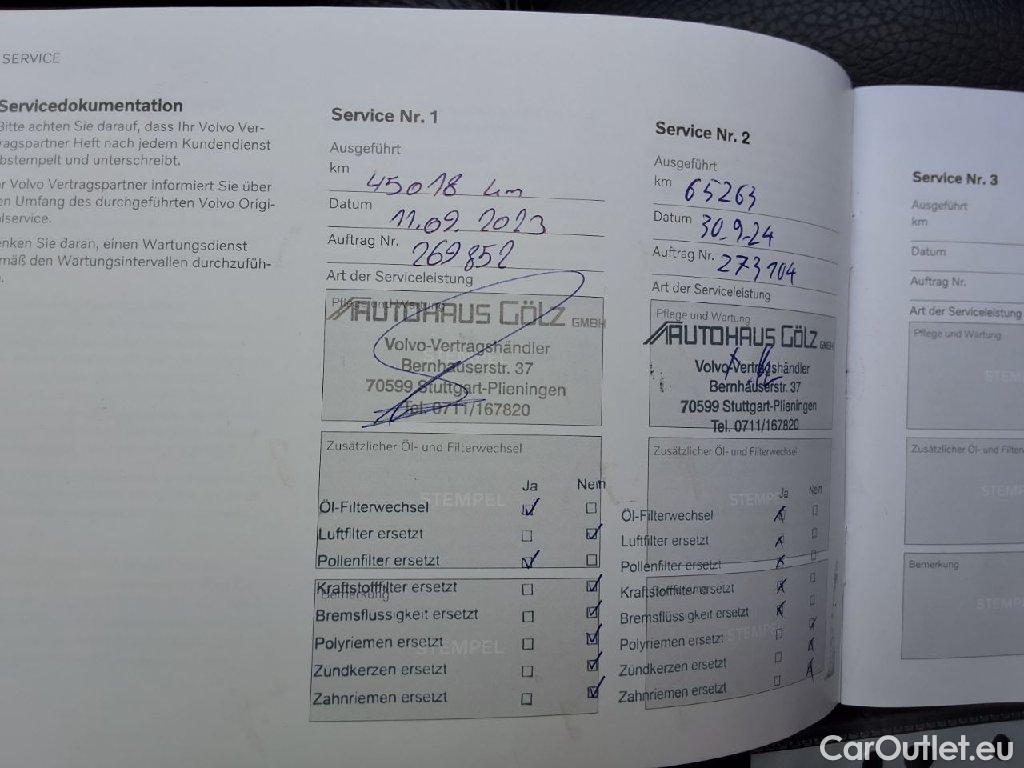 SERVICE
Servicedokumentation
Bitte achten Sie darauf, dass Ihr Volvo Ver-
ragspartner Heft nach jedem Kundendienst
bstempelt und unterschreibt.
r Volvo Vertragspartner informiert Sie über
en Umfang des durchgeführten Volvo Origi-
alservice.
enken Sie daran, einen Wartungsdienst
mäß den Wartungsintervallen durchzufüh-
Service Nr. 1
Ausgeführt
km 45018 km
Datum 11.09.2023
Auftrag Nr. 269852
Art der Serviceleistung
Pflege und Wartung
AUTOHAUS GÖLZ GMBH
Volvo-Vertragshändler
Bernhauserstr. 37
70599 Stuttgart-Plieningen
Tel. 0711/167820
Zusätzlicher Öl- und Filterwechsel
STEMPEL
Ja Nein
Öl-Filterwechsel
Luftfilter ersetzt
Pollenfilter ersetzt
Kraftstofffilter ersetzt
Bemerkung
Bremsflüssigkeit ersetzt
Polyriemen ersetzt
STEMPEL
Zündkerzen ersetzt
Zahnriemen ersetzt
Service Nr. 2
Ausgeführt
km 65263
Datum 30.9.24
Auftrag Nr. 273104
Art der Serviceleistung
Pflege und Wartung
AUTOHAUS GÖLZ GMBH
Volvo-Vertragshändler
Bernhauserstr. 37
70599 Stuttgart-Plieningen
Tel. 0711/167820
Zusätzlicher Öl- und Filterwechsel
STEMPEL
Ja Nein
Öl-Filterwechsel
Luftfilter ersetzt
Pollenfilter ersetzt
Kraftstofffilter ersetzt
Bremsflüssigkeit ersetzt
Polyriemen ersetzt
STEMPEL
Zündkerzen ersetzt
Zahnriemen ersetzt
Service Nr. 3
Ausgeführt
km
Datum
Auftrag Nr.
Art der Serviceleistung
Pflege und Wartung
STEM
Zusätzlicher Öl- und Filterw
STEMP
Bemerkung
STEMP
CarOutlet.eu